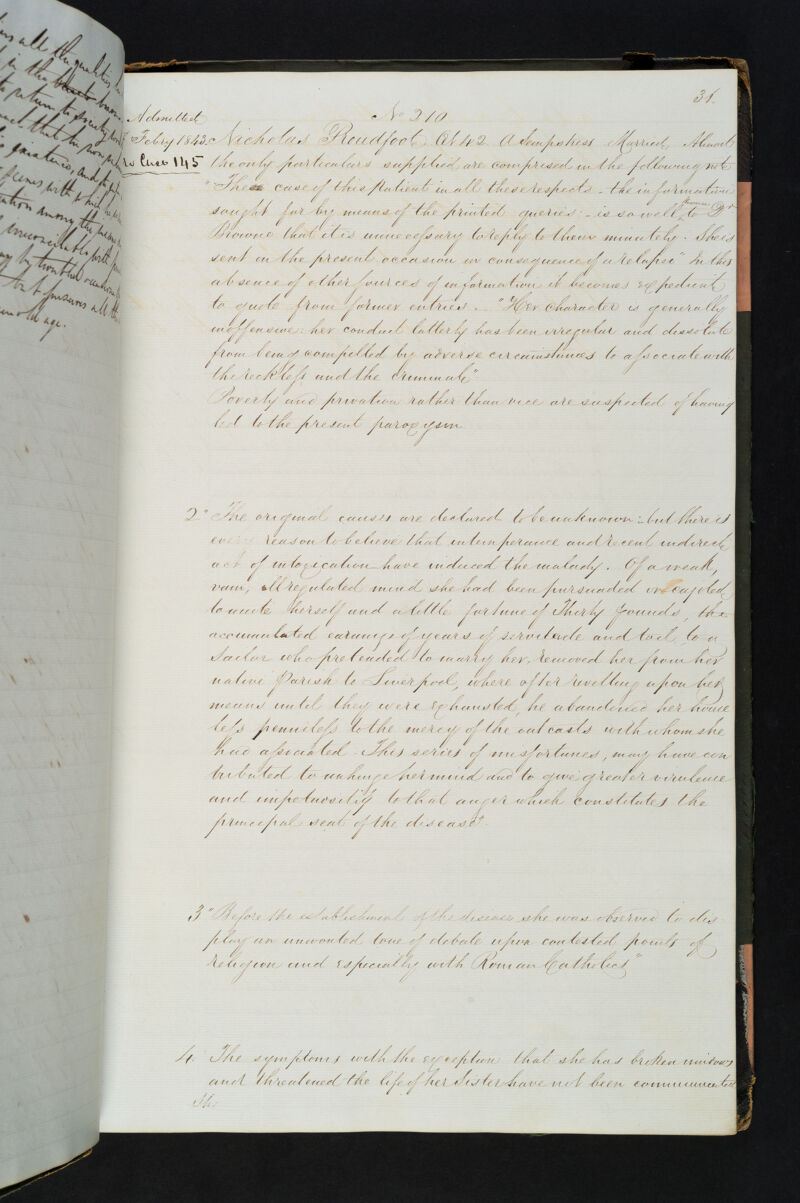 31.
Admitted
Nº 210
Febry 1843. Nicholas Proudfoot Æt 42. A Sempstress Married. Almost
Case 145
the only particulars supplied are comprised in the following note
"The case of this Patient in all these respects – the information
sought for by means of the printed queries – is so well to Dr
Browne that it is unnecessary to reply to them minutely. She is
sent on the present occasion in consequence of a relapse" In this
absence of other sources of information it becomes expedient
to quote from former entries. – "Her character is generally
inoffensive: her conduct latterly has been irregular and dissolute
from being compelled by adverse circumstances to associate with
the reckless and the criminal"
Poverty and privation rather than vice are suspected of having
led to the present paroxysm
2 "The original causes are declared to be unknown: but there is
every reason to believe that intemperance and recent indirect
act of intoxication have induced the malady. Of a weak,
vain, ill regulated mind she had been persuaded or cajoled
to unite herself and a little fortune of Thirty pounds, the
accumulated earnings of years of servitude and toil, to a
Sailor who pretended to marry her, removed her from her
native Parish to Liverpool, where after revelling upon her
means until they were exhausted, he abandoned her house
less penniless to the mercy of the outcasts with whom she
had associated. This series of misfortunes, may have con
tributed to unhinge her mind and to give greater virulence
and impetuosity to that anger which constitutes the
principal seat of the disease".
3 "Before the establishment of the disease she was observed to dis
play an unwonted love of debate upon contested points of
religion and especially with Roman Catholics"
4. The symptoms with the exception that she has broken windows
and threatened the life of her Sister have not been communicated